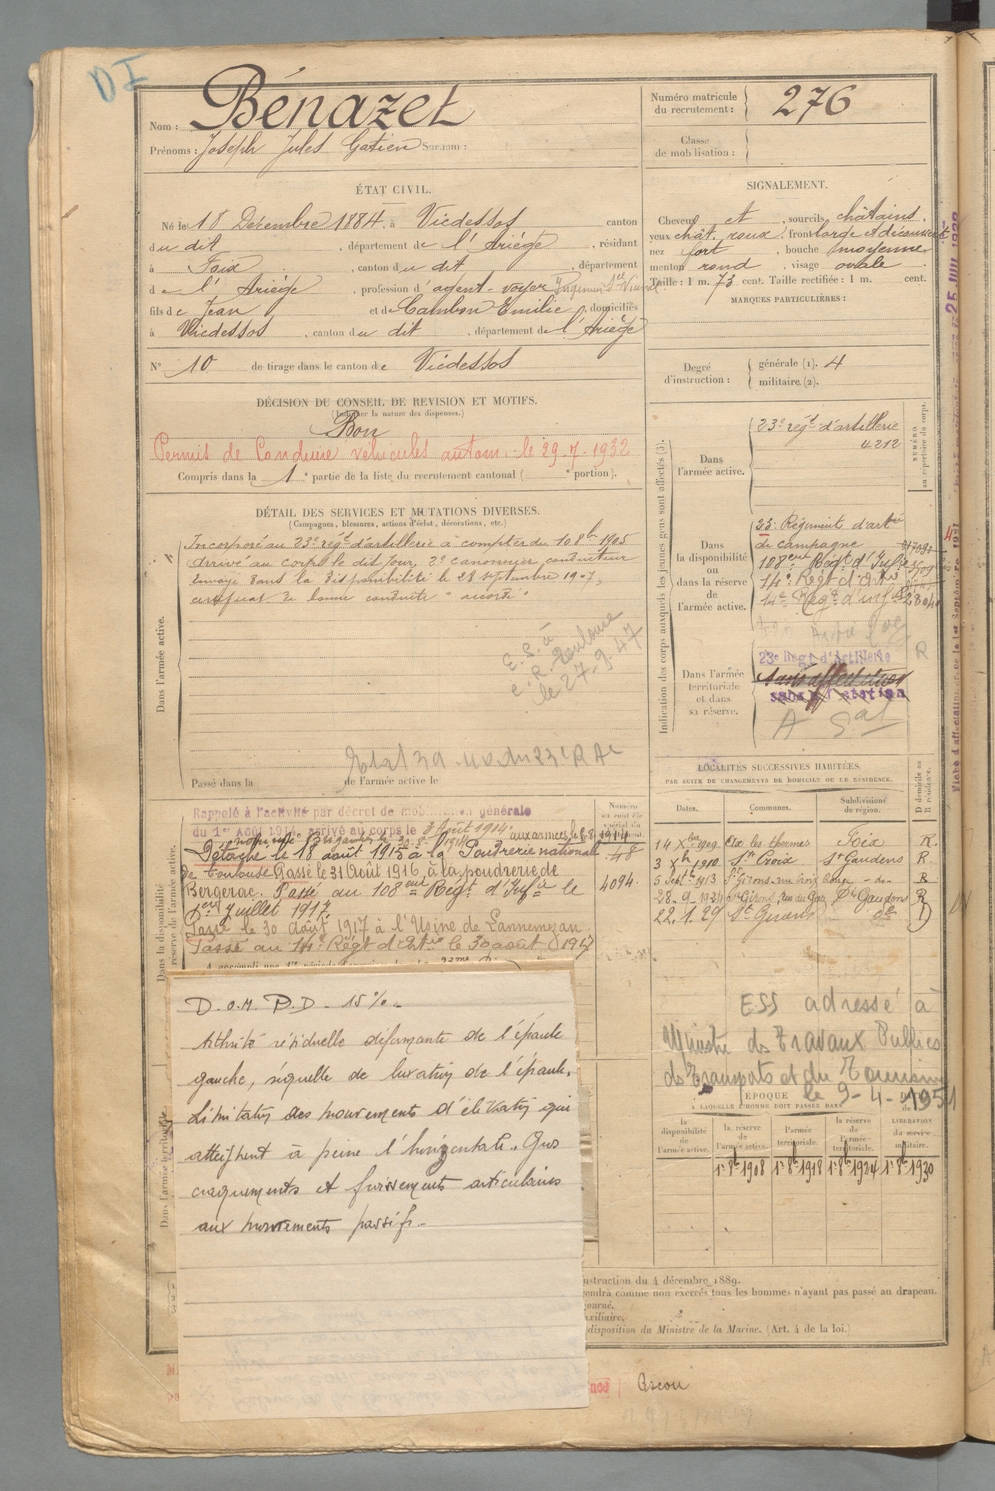 DI
Nom : Bénazet
Prénoms : Joseph Jules Gatien Surnom :
Numéro matricule du recrutement : 276
Classe de mobilisation :
ÉTAT CIVIL.
Né le 18 Décembre 1884, à Vicdessos canton
du dit, département de l'Ariège, résidant
à Foix, canton du dit, département
de l'Ariège, profession d'agent-voyer
fils de Jean et de Cambon Emilie, domiciliés
à Vicdessos, canton du dit, département de l'Ariège
N° 10 de tirage dans le canton de Vicdessos
SIGNALEMENT.
Cheveux et, sourcils châtains.
yeux chât. roux, front large et découvert
nez fort, bouche moyenne
menton rond, visage ovale
Taille : 1 m. 73 cent. Taille rectifiée : 1 m. cent.
MARQUES PARTICULIÈRES :
Degré d'instruction : générale (1). 4
militaire (2).
DÉCISION DU CONSEIL DE REVISION ET MOTIFS.
(Indiquer la nature des dispenses.)
Bon
Permis de Conduire vehicules autom. le 29.7.1932
Compris dans la 1e partie de la liste du recrutement cantonal ( e portion).
DÉTAIL DES SERVICES ET MUTATIONS DIVERSES.
(Campagnes, blessures, actions d'éclat, décorations, etc.)
Dans l'armée active.
Incorporé au 23e régt d'artillerie à compter du 10 8bre 1905
Arrivé au corps le dit jour, 2e canonnier conducteur
Envoyé dans la disponibilité le 28 septembre 1907,
certificat de bonne conduite "accordé"
E.S. à
C.R. Toulouse
le 27.9.47
Passé dans la de l'armée active le
Indication des corps auxquels les jeunes gens sont affectés (3).
NUMÉRO au répertoire du corps.
Dans l'armée active.
23e régt d'artillerie
4212
Dans la disponibilité ou dans la réserve de l'armée active.
23e Régiment d'artie
de campagne
108eme Régt d'Infie
14e Régt d'Artie
14e Régt d'inf
Dans l'armée territoriale et dans sa réserve.
23e Régt d'Artillerie
Sans affectation
sans affectation
R
LOCALITÉS SUCCESSIVES HABITÉES.
PAR SUITE DE CHANGEMENTS DE DOMICILE OU DE RÉSIDENCE.
Dates. Communes. Subdivisions de région. D domicile ou R résidence.
14 Xbre 1909. Ax les thermes Foix R.
3 Xbre 1910. Ste Croix St Gaudens R.
5 Septbre 1913 St Girons -do- R
28-9-1924 St Girons, St Gaudens R
22.1.29 St Girons do D
Dans la disponibilité
réserve de l'armée active.
Rappelé à l'activité par décret de mobilisation générale
du 1er Août 1914, arrivé au corps le 3 Août 1914. aux armées le 8.8.1914
Détaché le 18 août 1915 à la Poudrerie nationale
de Toulouse Passé le 31 Août 1916, à la poudrerie de
Bergerac. Passé au 108eme Régt d'Infie le
1er Juillet 1917.
Passé le 30 août 1917 à l'Usine de Lannemezan
Passé au 14e Régt d'Artie le 30 août 1917
4094.
D.O.M. P.D - 15%.
Athrite résiduelle déformante de l'épaule
gauche, séquelle de luxation de l'épaule.
Limitation des mouvements d'élévation qui
atteignent à peine l'horizontale. Gros
craquements et froissements articulaires
aux mouvements passifs.
ESS adressé à
Ministre des Travaux Publics
des Transports et du Tourisme
le 9-4-1951
ÉPOQUE
À LAQUELLE L'HOMME DOIT PASSER DANS
la disponibilité de l'armée active. la réserve de l'armée active. l'armée territoriale. la réserve de l'armée territoriale. LIBÉRATION du service militaire.
1er 8bre 1908 1er 8bre 1918 1er 8bre 1924 1er 8bre 1930
instruction du 4 décembre 1889.
comme non exercés tous les hommes n'ayant pas passé au drapeau.
disposition du Ministre de la Marine. (Art. 4 de la loi.)